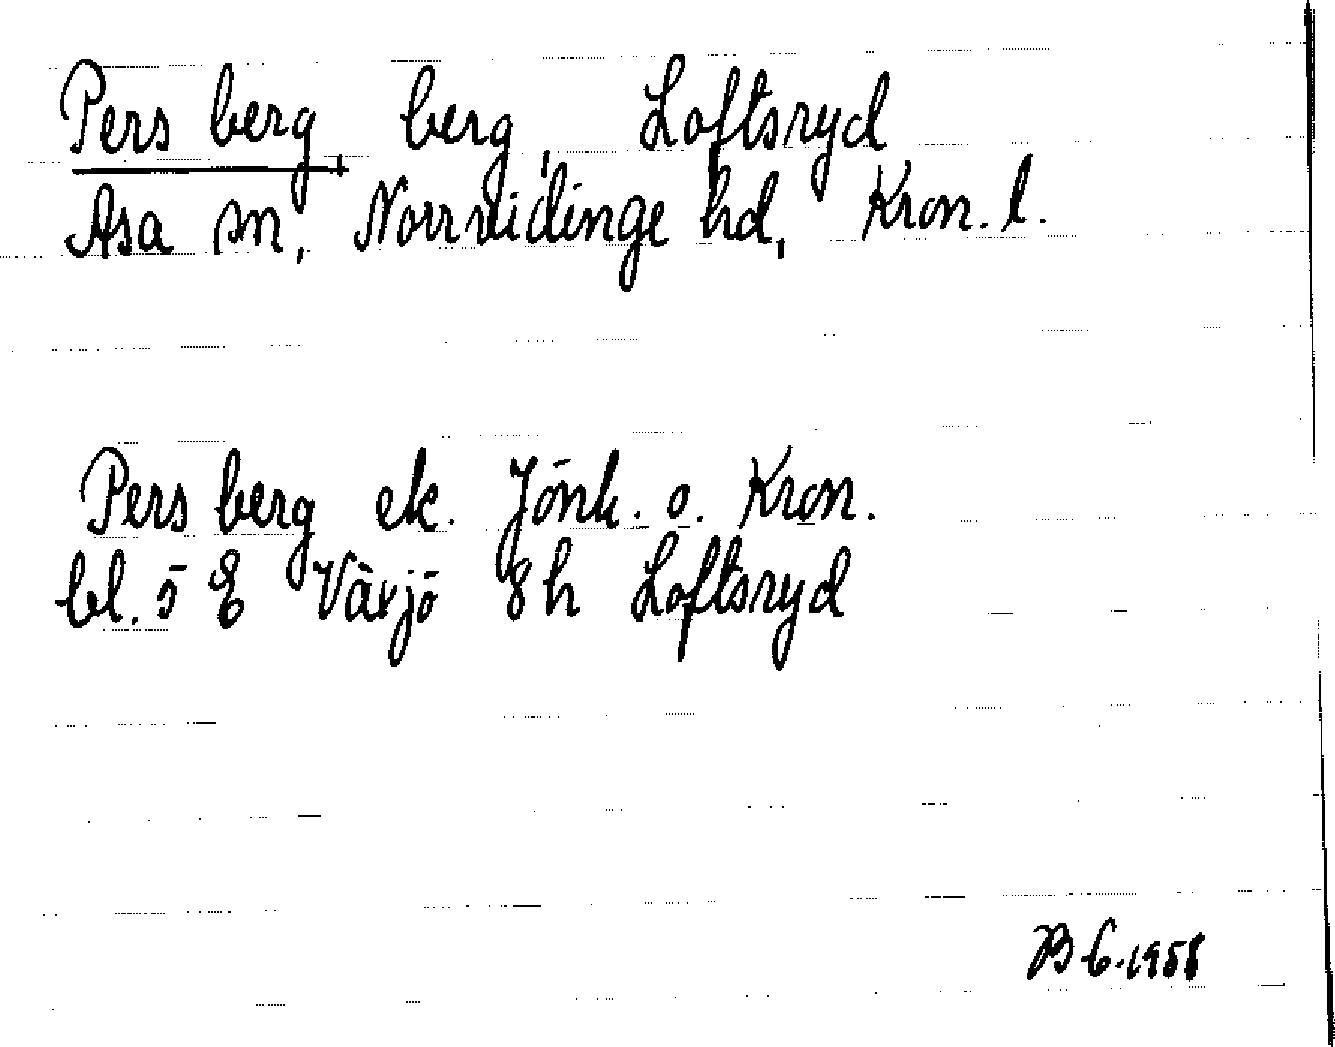 Pers berg, berg, Loftsryd
Asa sn, Norrvidinge hd, Kron. l.
Pers berg ek. Jönk. o. Kron.
bl. 5 E Växjö 8h Loftsryd